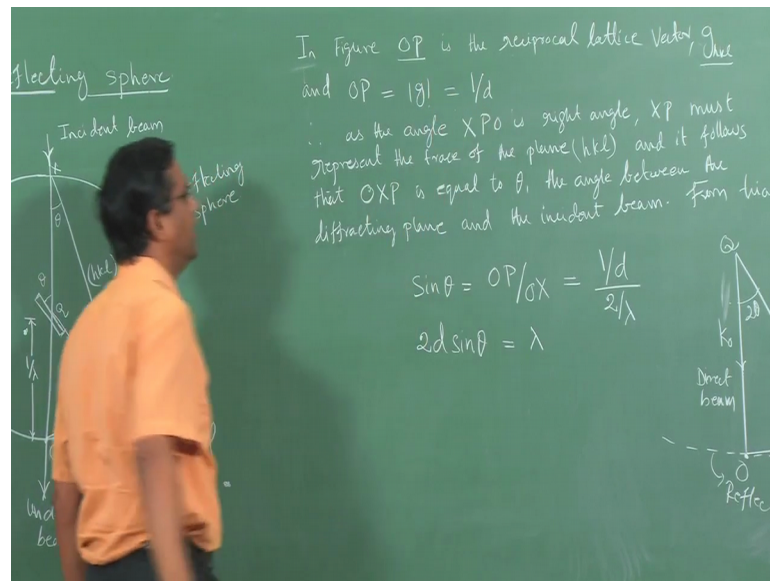 flecting sphere
Incident beam
x
θ
flecting
sphere
(hkl)
θ
Q
1/λ
Und
be
In Figure OP is the reciprocal lattice Vector, g_hkl
and OP = |g| = 1/d
∴ as the angle XPO is right angle, XP must
represent the trace of the plane (hkl) and it follows
that OXP is equal to θ, the angle between the
diffracting plane and the incident beam. From tria
Sinθ = OP/OX = (1/d)/(2/λ)
2d sinθ = λ
Q
2θ
K₀
Direct
beam
O
Reflec